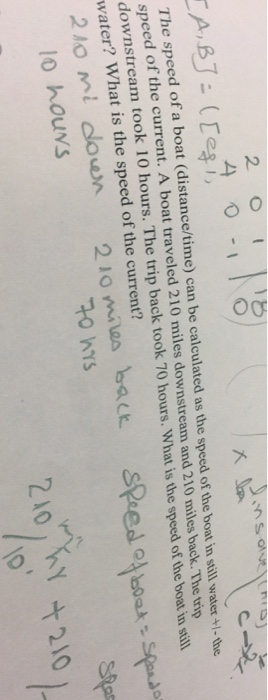 2 0 1
4 0 -1
[A,B] =
The speed of a boat (distance/time) can be calculated as the speed of the boat in still water +/- the
speed of the current. A boat traveled 210 miles downstream and 210 miles back. The trip
downstream took 10 hours. The trip back took 70 hours. What is the speed of the boat in still
water? What is the speed of the current?
210 mi down 210 miles back speed of boat =
10 hours 70 hrs
210/10 mi/hr + 210/